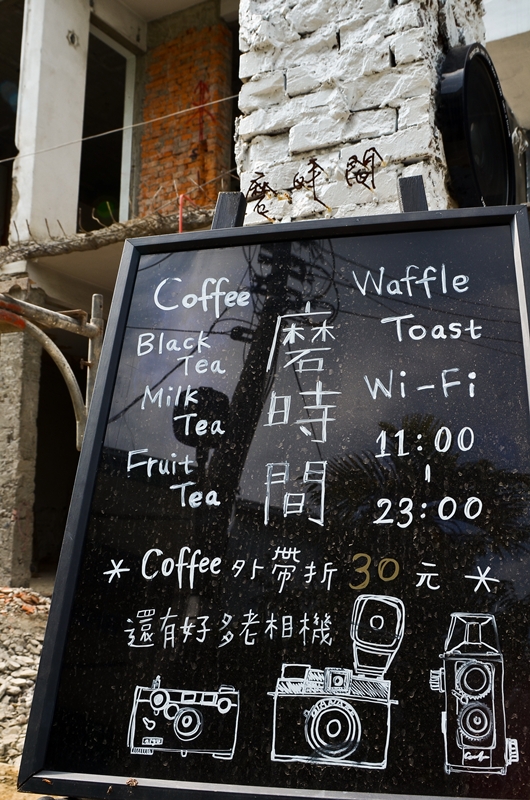 磨時間
Coffee
Black
Tea
Milk
Tea
Fruit
Tea
磨時間
Waffle
Toast
Wi-Fi
11:00
|
23:00
* Coffee 外帶折 30 元 *
還有好多老相機